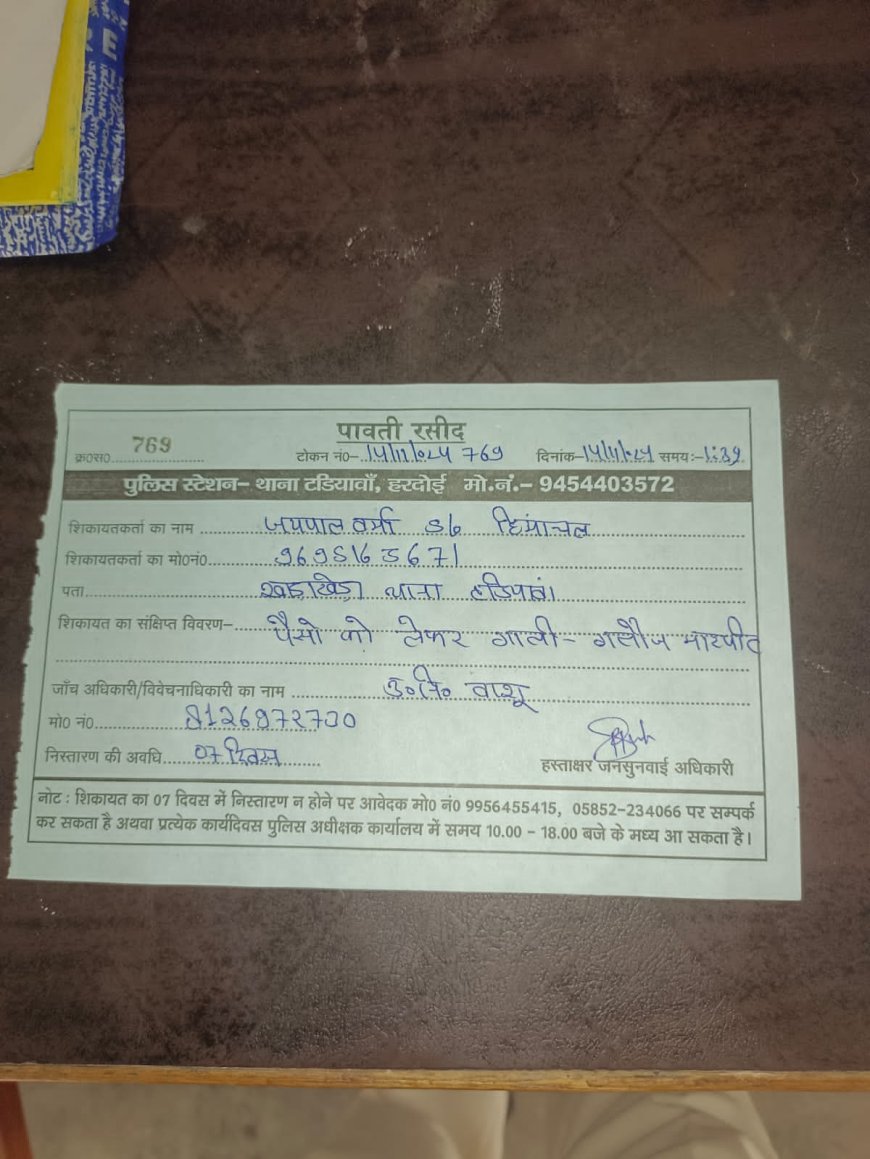 RE
पावती रसीद
क्र०स०.... 769 टोकन नं०– 14/11/024 769 दिनांक–14/11/024 समयः–1:39
पुलिस स्टेशन– थाना टडियावाँ, हरदोई मो.नं.– 9454403572
शिकायतकर्ता का नाम .... जयपाल वर्मा S/o हिमांचल
शिकायतकर्ता का मो०नं०....
पता.... थाना टडियावां
शिकायत का संक्षिप्त विवरण– पैसो को लेकर गाली– गलौज मारपीट
जाँच अधिकारी/विवेचनाधिकारी का नाम .... उ०नि० वाशू
मो० नं०....
निस्तारण की अवधि.... 07 दिवस
हस्ताक्षर जनसुनवाई अधिकारी
नोट : शिकायत का 07 दिवस में निस्तारण न होने पर आवेदक मो० नं० 9956455415, 05852-234066 पर सम्पर्क
कर सकता है अथवा प्रत्येक कार्यदिवस पुलिस अधीक्षक कार्यालय में समय 10.00 – 18.00 बजे के मध्य आ सकता है।